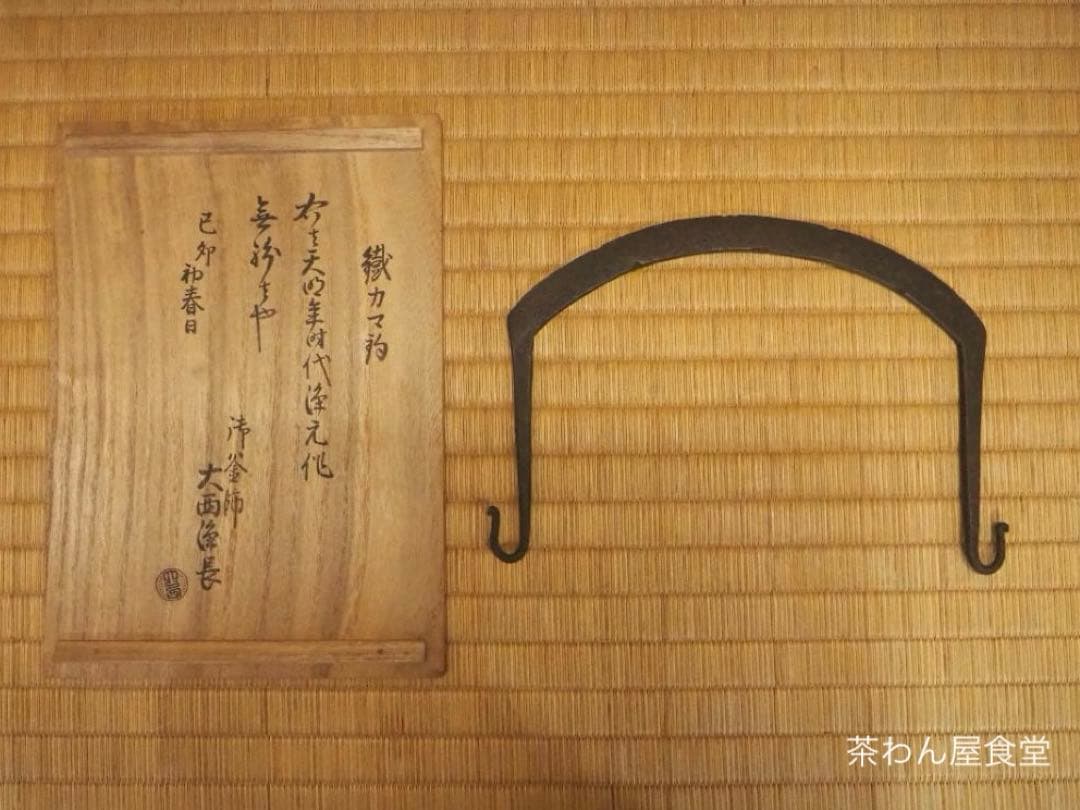 鐵カマ釣
右者天明年时代浄元作
無紛者也
己卯初春日
御釜師
大西浄長
茶わん屋食堂